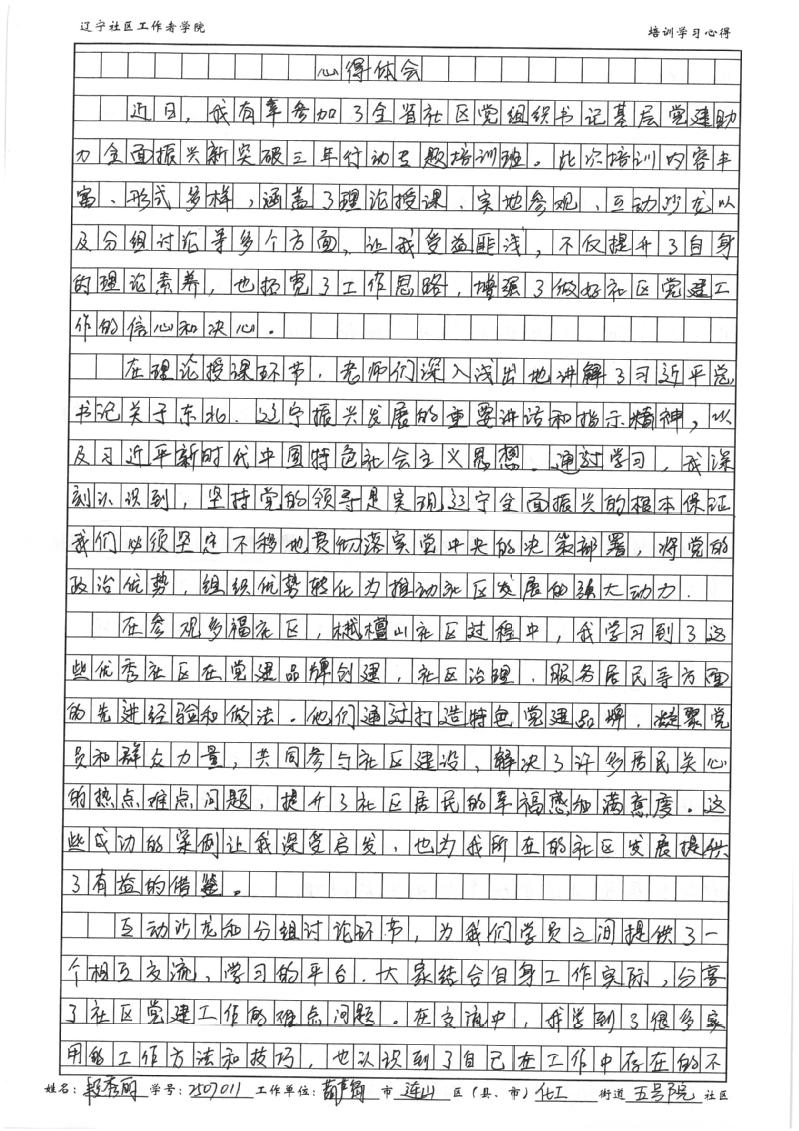 辽宁社区工作者学院 培训学习心得
心得体会
近日，我有幸参加了全省社区党组织书记基层党建助
力全面振兴新突破三年行动专题培训班。此次培训内容丰
富、形式多样，涵盖了理论授课、实地参观、互动沙龙以
及分组讨论等多个方面，让我受益匪浅，不仅提升了自身
的理论素养，也拓宽了工作思路，增强了做好社区党建工
作的信心和决心。
在理论授课环节，老师们深入浅出地讲解了习近平总
书记关于东北、辽宁振兴发展的重要讲话和指示精神，以
及习近平新时代中国特色社会主义思想。通过学习，我深
刻认识到，坚持党的领导是实现辽宁全面振兴的根本保证
我们必须坚定不移地贯彻落实党中央的决策部署，将党的
政治优势，组织优势转化为推动社区发展的强大动力．
在参观多福社区，樾檀山社区过程中，我学习到了这
些优秀社区在党建品牌创建，社区治理、服务居民等方面
的先进经验和做法。他们通过打造特色党建品牌，凝聚党
员和群众力量，共同参与社区建设，解决了许多居民关心
的热点难点问题，提升了社区居民的幸福感和满意度。这
些成功的案例让我深受启发，也为我所在的社区发展提供
了有益的借鉴。
互动沙龙和分组讨论环节，为我们学员之间提供了一
个相互交流、学习的平台．大家结合自身工作实际，分享
了社区党建工作的难点问题。在交流中，我学到了很多实
用的工作方法和技巧，也认识到了自己在工作中存在的不
姓名：段秀丽 学号：2507011 工作单位：葫芦岛 市 连山 区（县、市） 化工 街道 五号院 社区